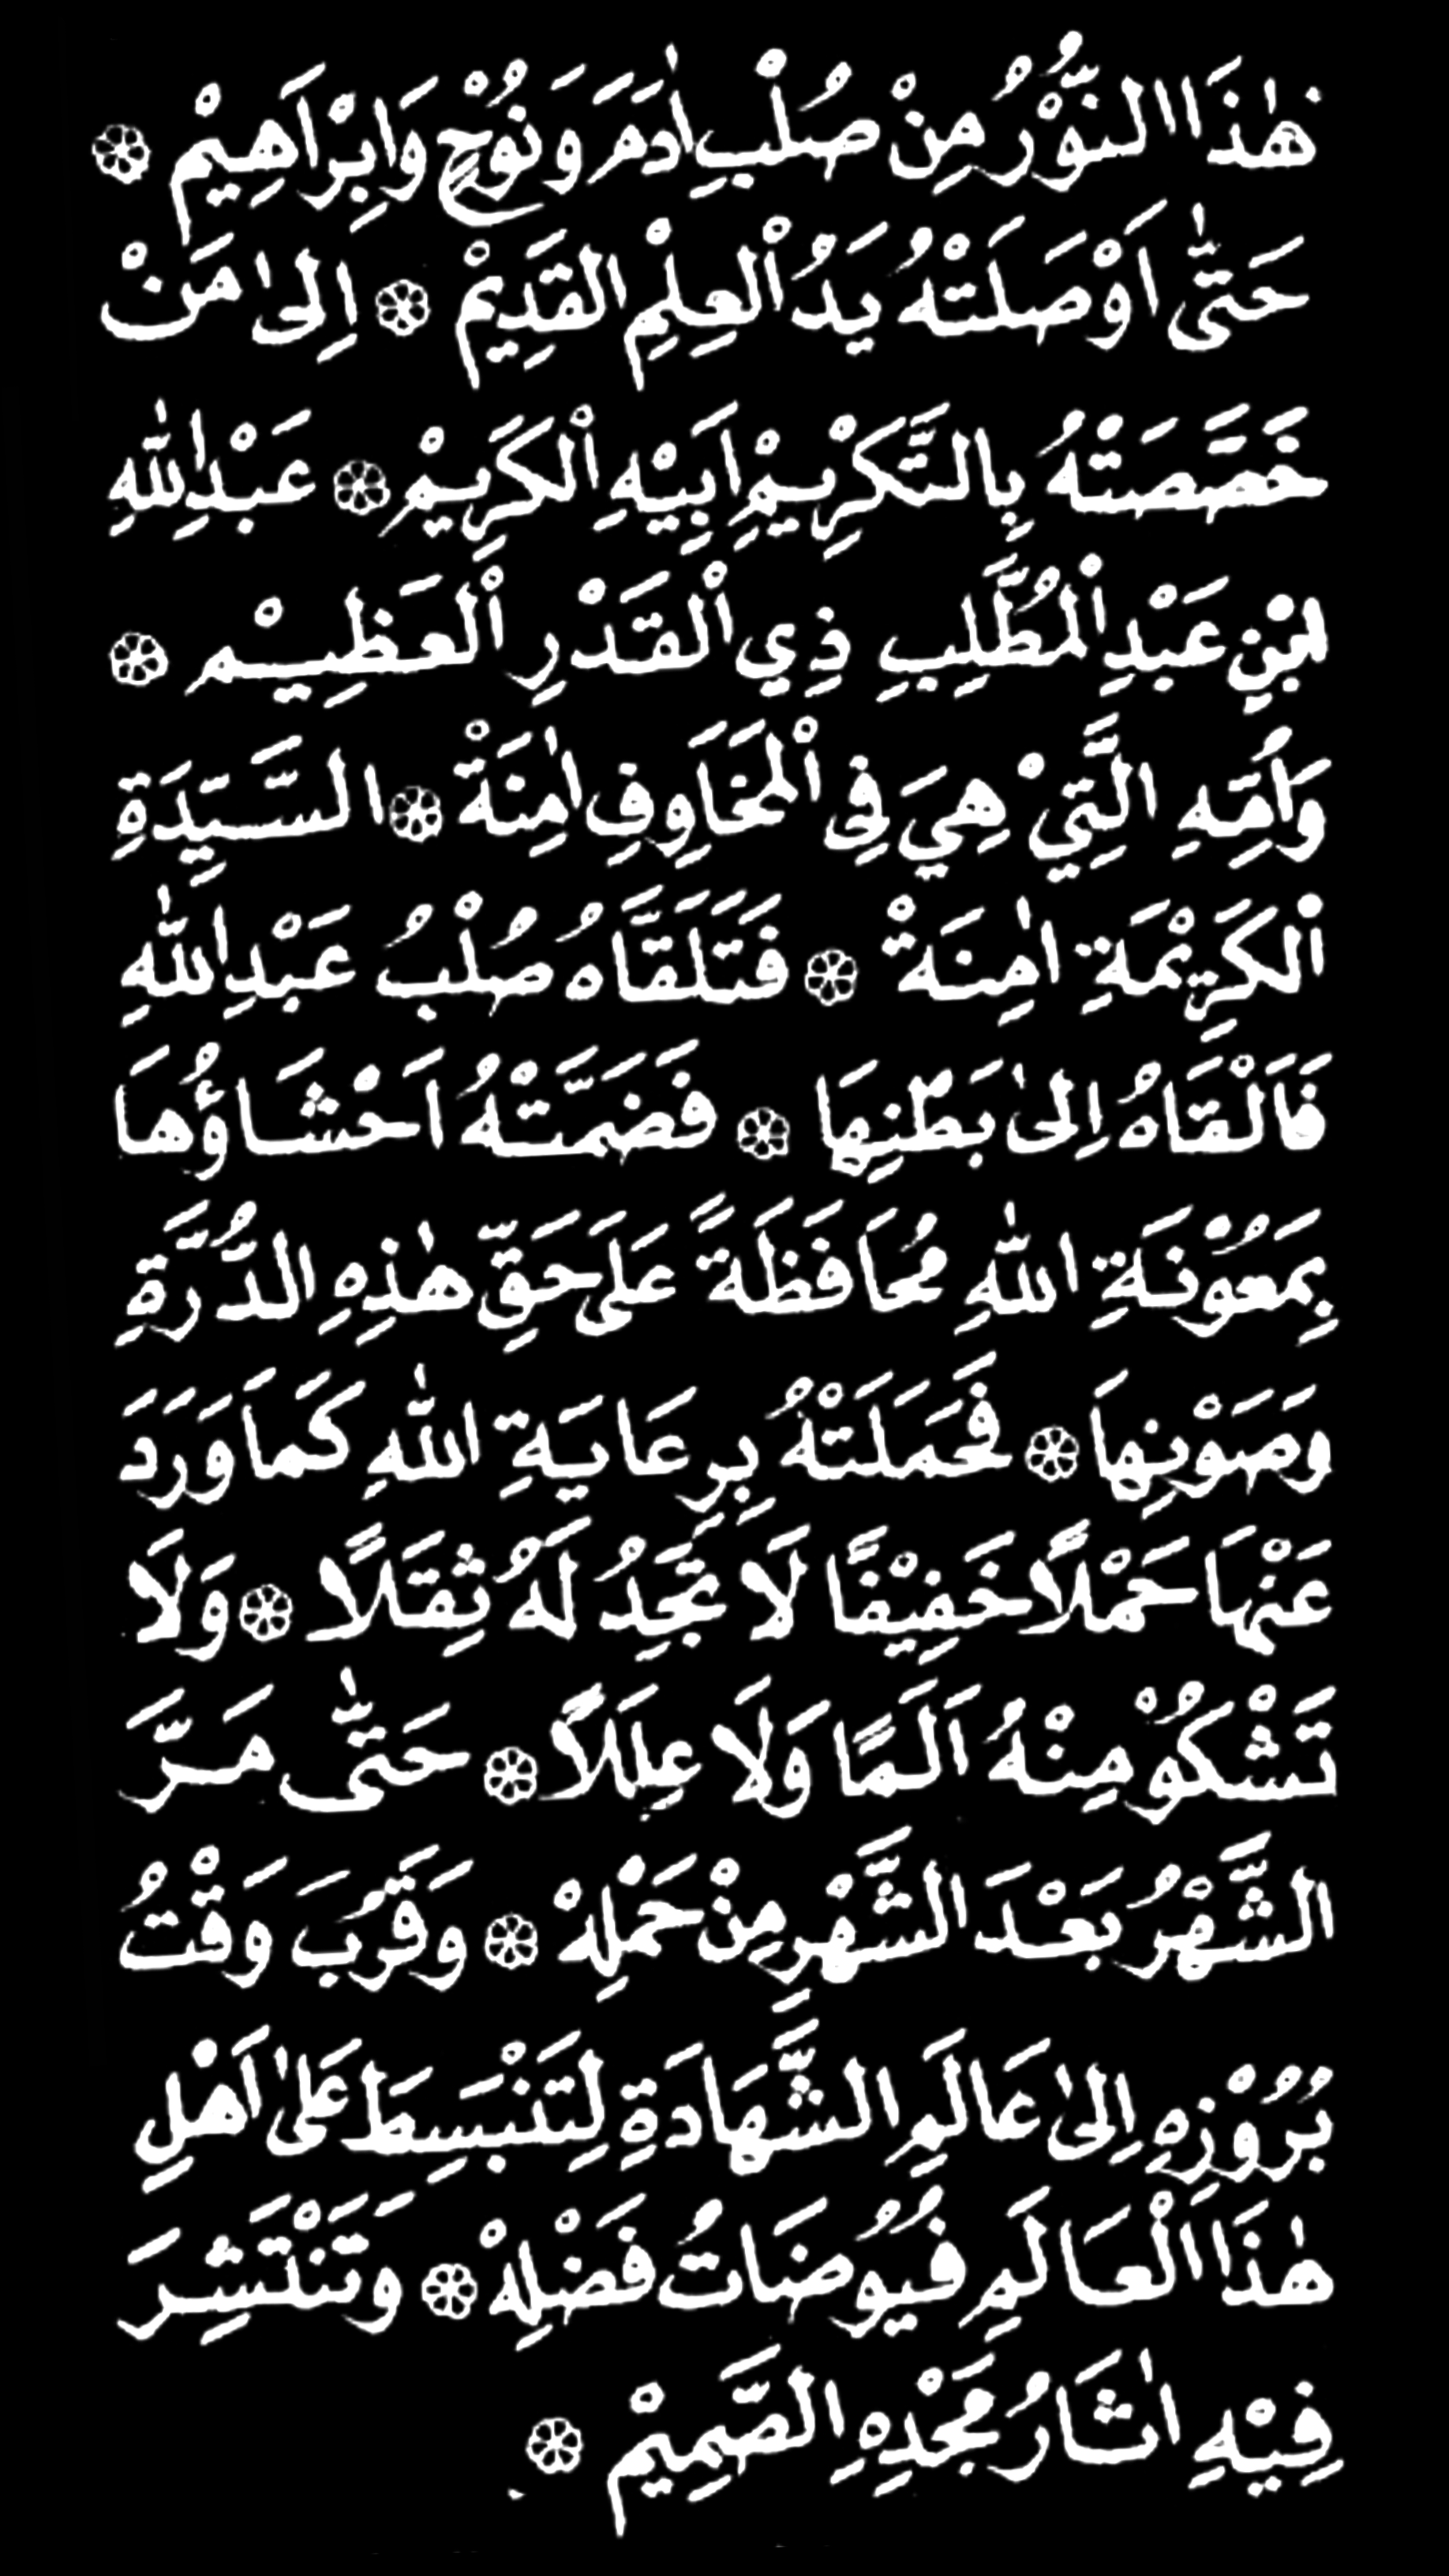 هٰذَا النُّوْرُ مِنْ صُلْبِ اٰدَمَ وَنُوْحٍ وَاِبْرَاهِيْمْ ۞
حَتّٰى اَوْصَلَتْهُ يَدُ الْعِلْمِ القَدِيْمْ ۞ اِلىٰ مَنْ
خَصَّصَتْهُ بِالتَّكْرِيْمِ اَبِيْهِ الْكَرِيْمْ ۞ عَبْدِ اللهِ
ابْنِ عَبْدِ الْمُطَّلِبِ ذِي الْقَدْرِ الْعَظِيْمْ ۞
وَاُمِّهِ الَّتِيْ هِيَ فِى الْمَخَاوِفِ اٰمِنَةْ ۞ السَّيِّدَةِ
الْكَرِيْمَةِ اٰمِنَةْ ۞ فَتَلَقَّاهُ صُلْبُ عَبْدِ اللهِ
فَاَلْقَاهُ اِلىٰ بَطْنِهَا ۞ فَضَمَّتْهُ اَحْشَاؤُهَا
بِمَعُوْنَةِ اللهِ مُحَافَظَةً عَلَى حَقِّ هٰذِهِ الدُّرَّةِ
وَصَوْنِهَا ۞ فَحَمَلَتْهُ بِرِعَايَةِ اللهِ كَمَا وَرَدَ
عَنْهَا حَمْلًا خَفِيْفًا لَا تَجِدُ لَهُ ثِقَلًا ۞ وَلَا
تَشْكُوْ مِنْهُ اَلَمًا وَلَا عِلَلًا ۞ حَتّٰى مَرَّ
الشَّهْرُ بَعْدَ الشَّهْرِ مِنْ حَمْلِهْ ۞ وَقَرُبَ وَقْتُ
بُرُوْزِهِ اِلىٰ عَالَمِ الشَّهَادَةِ لِتَنْبَسِطَ عَلىٰ اَهْلِ
هٰذَا الْعَالَمِ فُيُوضَاتُ فَضْلِهْ ۞ وَتَنْتَشِرَ
فِيْهِ اٰثَارُ مَجْدِهِ الصَّمِيْمْ ۞